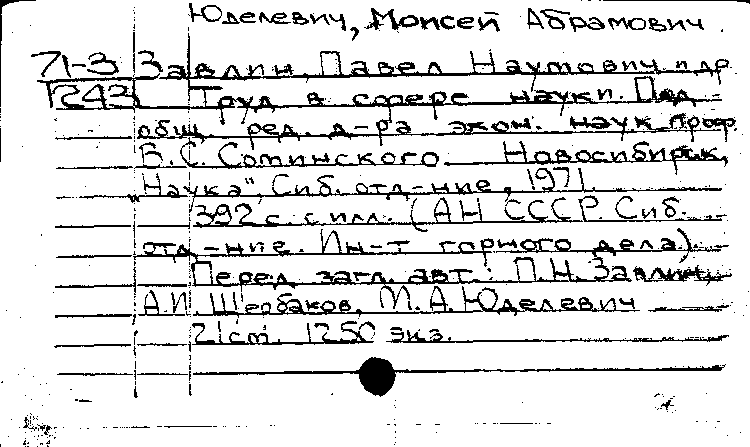 Юделевич, Моисей Абрамович.
71-3 Завлин, Павел Наумович и др.
1243 Труд в сфере науки. Под
общ. ред. д-ра экон. наук проф.
В.С. Соминского. Новосибирск,
"Наука", Сиб. отд-ние, 1971.
392 с. с илл. (АН СССР. Сиб.
отд-ние. Ин-т горного дела).
Перед загл. авт.: П.Н. Завлин,
А.И. Щербаков, М.А. Юделевич
21 см. 1250 экз.